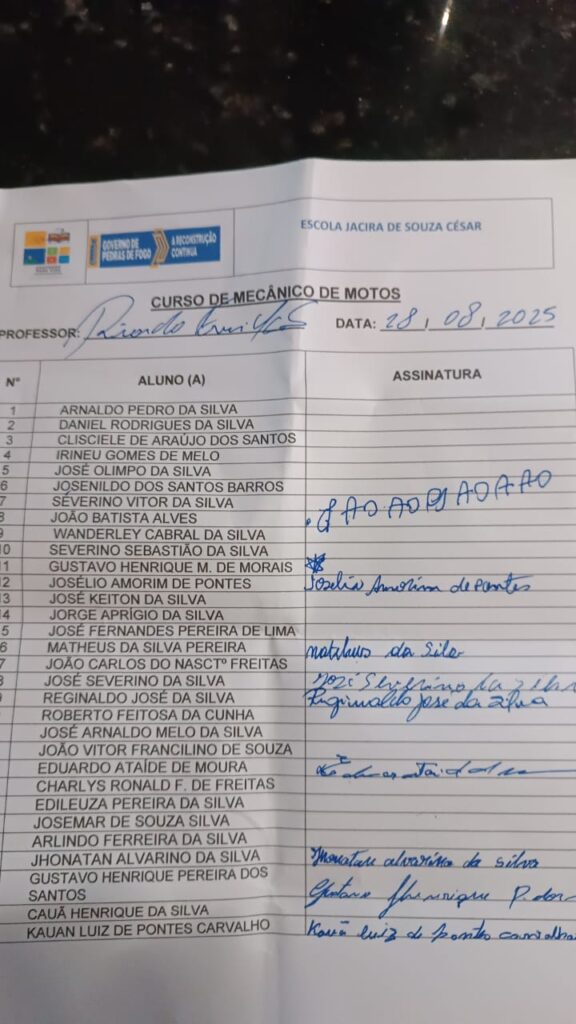 GOVERNO DE
PEDRAS DE FOGO
A RECONSTRUÇÃO
CONTINUA
ESCOLA JACIRA DE SOUZA CÉSAR
CURSO DE MECÂNICO DE MOTOS
PROFESSOR: Ricardo
DATA: 28 / 08 / 2025
N° ALUNO (A) ASSINATURA
1 ARNALDO PEDRO DA SILVA
2 DANIEL RODRIGUES DA SILVA
3 CLISCIELE DE ARAÚJO DOS SANTOS
4 IRINEU GOMES DE MELO
5 JOSÉ OLIMPO DA SILVA
6 JOSENILDO DOS SANTOS BARROS
7 SEVERINO VITOR DA SILVA
8 JOÃO BATISTA ALVES
9 WANDERLEY CABRAL DA SILVA
10 SEVERINO SEBASTIÃO DA SILVA
11 GUSTAVO HENRIQUE M. DE MORAIS
12 JOSÉLIO AMORIM DE PONTES Joselio Amorim de pontes
13 JOSÉ KEITON DA SILVA
14 JORGE APRÍGIO DA SILVA
5 JOSÉ FERNANDES PEREIRA DE LIMA
6 MATHEUS DA SILVA PEREIRA da Silv
7 JOÃO CARLOS DO NASCTº FREITAS
8 JOSÉ SEVERINO DA SILVA José Severino da
REGINALDO JOSÉ DA SILVA Reginaldo José da Silva
ROBERTO FEITOSA DA CUNHA
JOSÉ ARNALDO MELO DA SILVA
JOÃO VITOR FRANCILINO DE SOUZA
EDUARDO ATAÍDE DE MOURA
CHARLYS RONALD F. DE FREITAS
EDILEUZA PEREIRA DA SILVA
JOSEMAR DE SOUZA SILVA
ARLINDO FERREIRA DA SILVA
JHONATAN ALVARINO DA SILVA alvarino da silva
GUSTAVO HENRIQUE PEREIRA DOS
SANTOS Gustavo Henrique P. dos
CAUÃ HENRIQUE DA SILVA
KAUAN LUIZ DE PONTES CARVALHO Kauã luiz de pontes carvalho